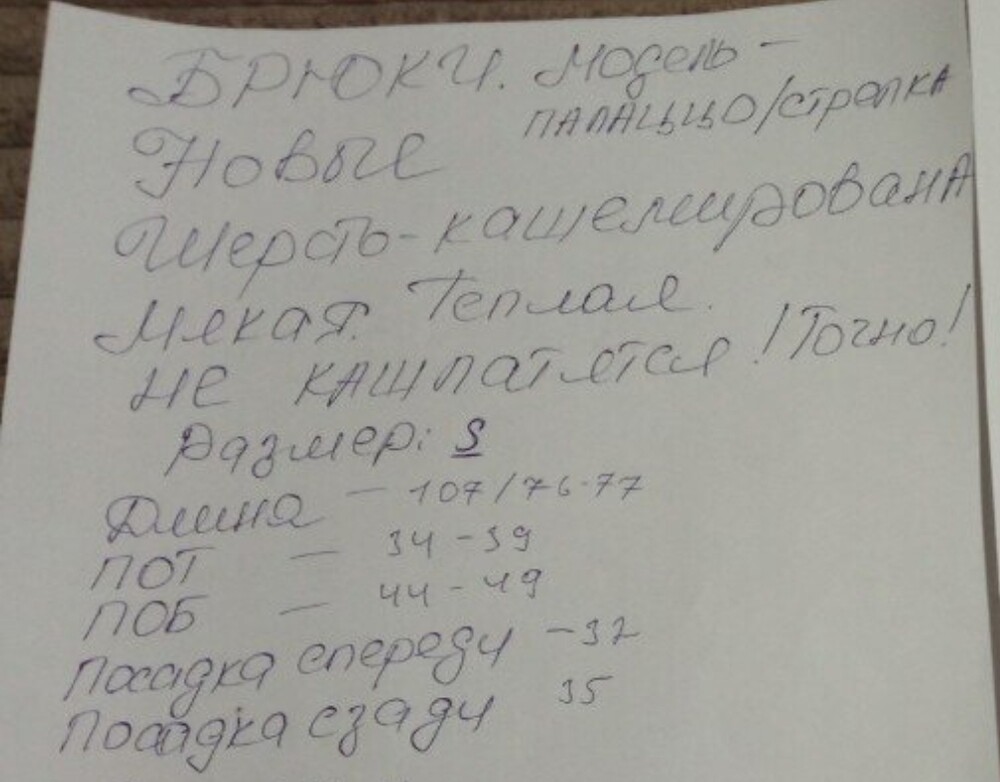 БРЮКИ. Модель -
ПАЛАЦЦО/стрелка
Новые
Шерсть-кашемирована
Мягкая. Теплая.
НЕ КАШЛАТЯТСЯ! Точно!
Размер: S
Длина - 107/76-77
ПОТ - 34-39
ПОБ - 44-49
Посадка спереди -32
Посадка сзади 35